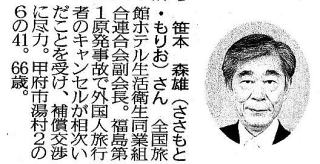 笹本　森雄（ささもと
・もりお）さん　全国旅
館ホテル生活衛生同業組
合連合会副会長。福島第
１原発事故で外国人旅行
者のキャンセルが相次い
だことを受け、補償交渉
に尽力。甲府市湯村２の
６の41。66歳。